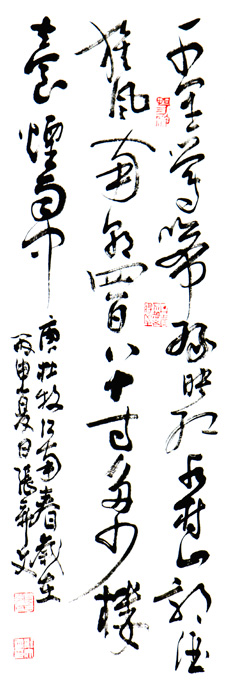 千里鶯啼綠映紅水村山郭酒
旗風南朝四百八十寺多少樓
臺煙雨中
唐杜牧江南春歲在
丙申夏日張